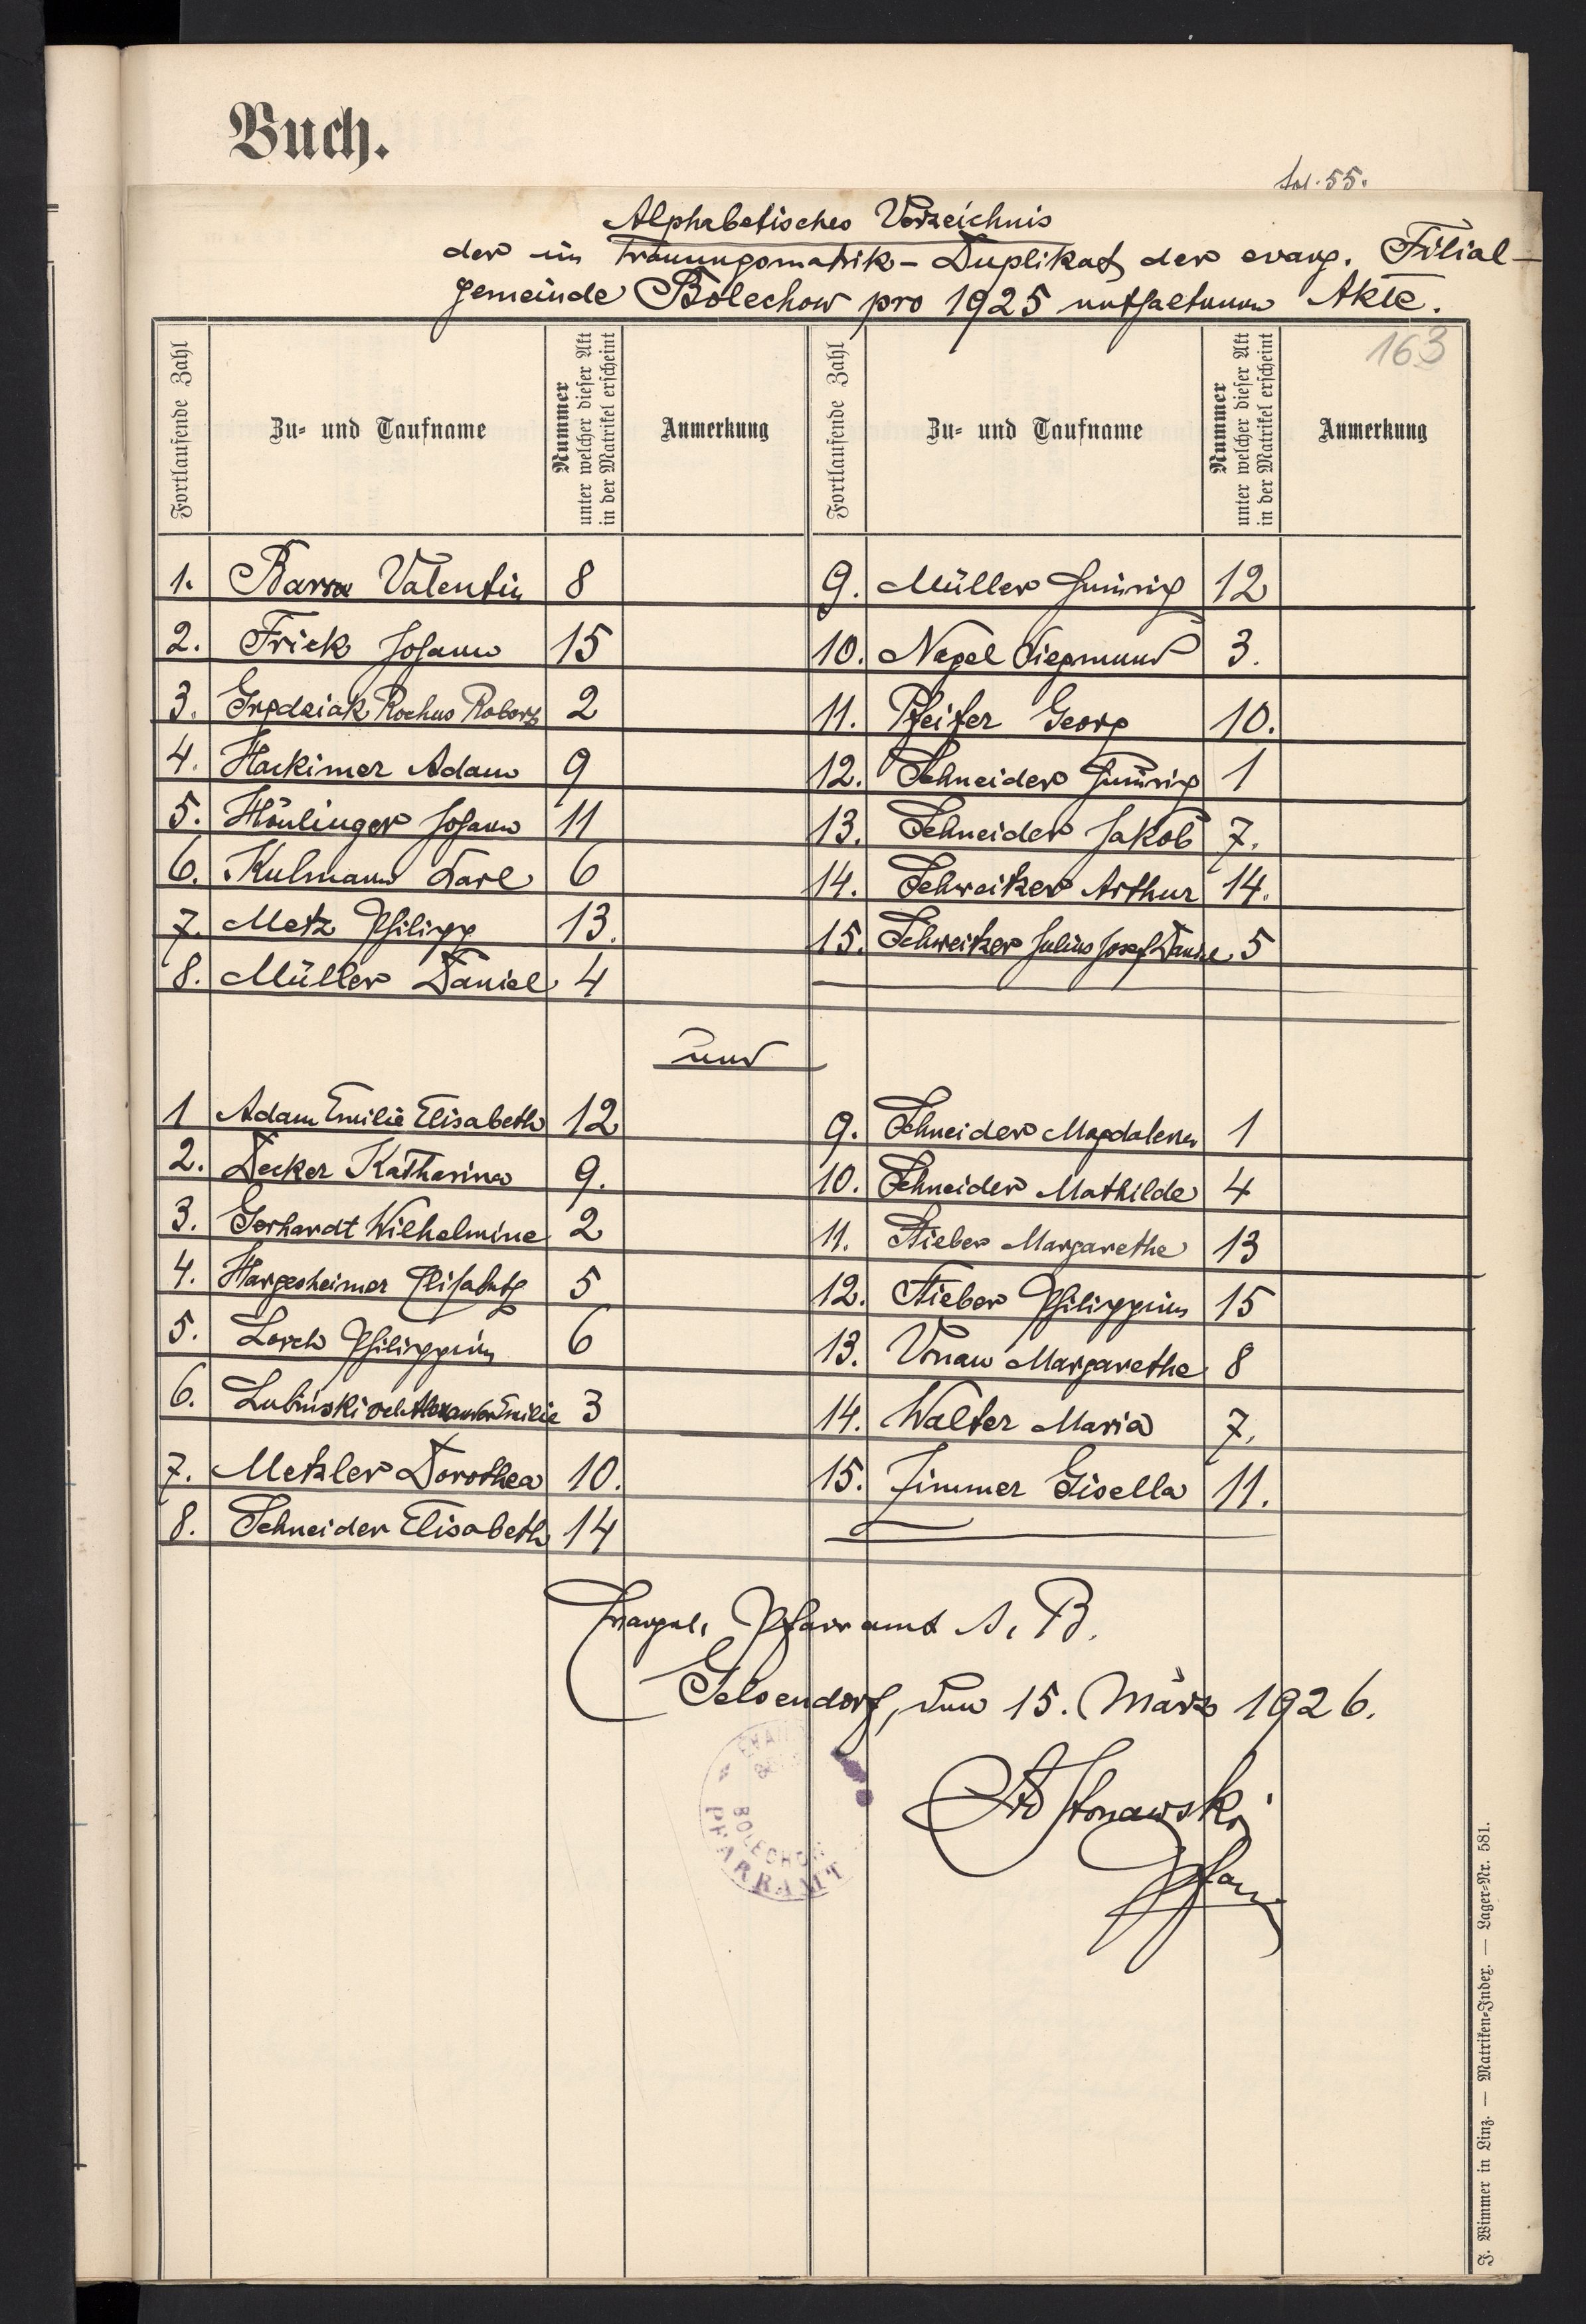 Buch.
fol. 55.
Alphabetisches Verzeichnis
der im Trauungsmatrik-Duplikat der evang. Filial-
gemeinde Bolechow pro 1925 enthaltenen Akte.
163
Fortlaufende Zahl
Zu- und Taufname
Nummer
unter welcher dieser Akt
in der Matrikel erscheint
Anmerkung
Fortlaufende Zahl
Zu- und Taufname
Nummer
unter welcher dieser Akt
in der Matrikel erscheint
Anmerkung
1. Valentin 8
2. Frick Johann 15
3. Rochus Robert 2
4. Hackimer Adam 9
5. Höulinger Johann 11
6. Kulmann Karl 6
7. Metz Philipp 13.
8. Müller Daniel 4
9. Müller Heinrich 12
10. Nagel Siegmund 3.
11. Pfeifer Georg 10.
12. Schneider Heinrich 1
13. Schneider Jakob 7.
14. Schweitzer Arthur 14.
15. Schweitzer Julius Josef Daniel 5
und
1 Adam Emilie Elisabeth 12
2. Decker Katharina 9.
3. Gerhardt Wilhelmine 2
4. Hargesheimer Elisabeth 5
5. Lorch Philippine 6
6. Lubinski Emilie 3
7. Metzler Dorothea 10.
8. Schneider Elisabeth 14
9. Schneider Magdalena 1
10. Schneider Mathilde 4
11. Stieber Margarethe 13
12. Stieber Philippine 15
13. Vonau Margarethe 8
14. Walter Maria 7.
15. Zimmer Gisella 11.
Evangel. Pfarramt A. B.
Gelsendorf, den 15. März 1926.
Pfarrer
BOLECHOW
PFARRAMT
F. Wimmer in Linz. — Matriken-Index. — Lager-Nr. 581.